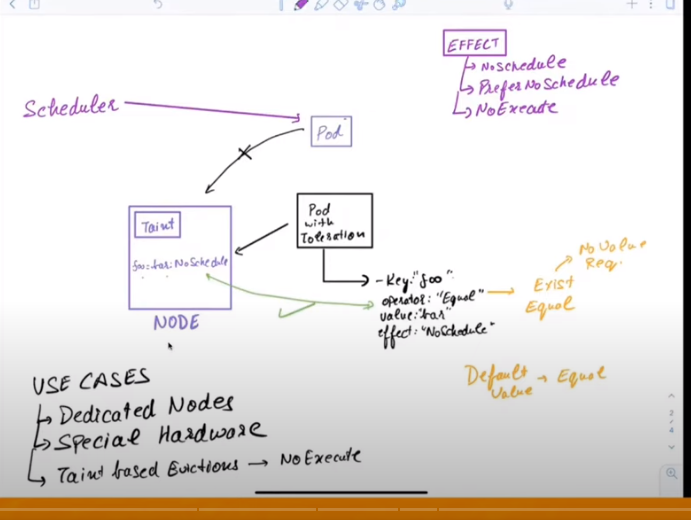 EFFECT
NoSchedule
PreferNoSchedule
NoExecute
Scheduler
Pod
Taint
foo=bar:NoSchedule
NODE
Pod
with
Toleration
- Key: "foo"
operator: "Equal"
value: "bar"
effect: "NoSchedule"
No Value
Req.
Exist
Equal
Default
Value → Equal
USE CASES
Dedicated Nodes
Special Hardware
Taint based Evictions → NoExecute
2
4